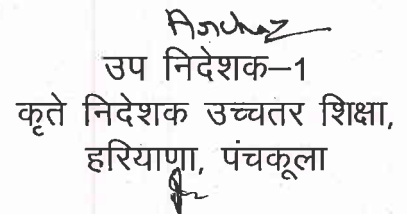 उप निदेशक–1
कृते निदेशक उच्चतर शिक्षा,
हरियाणा, पंचकूला